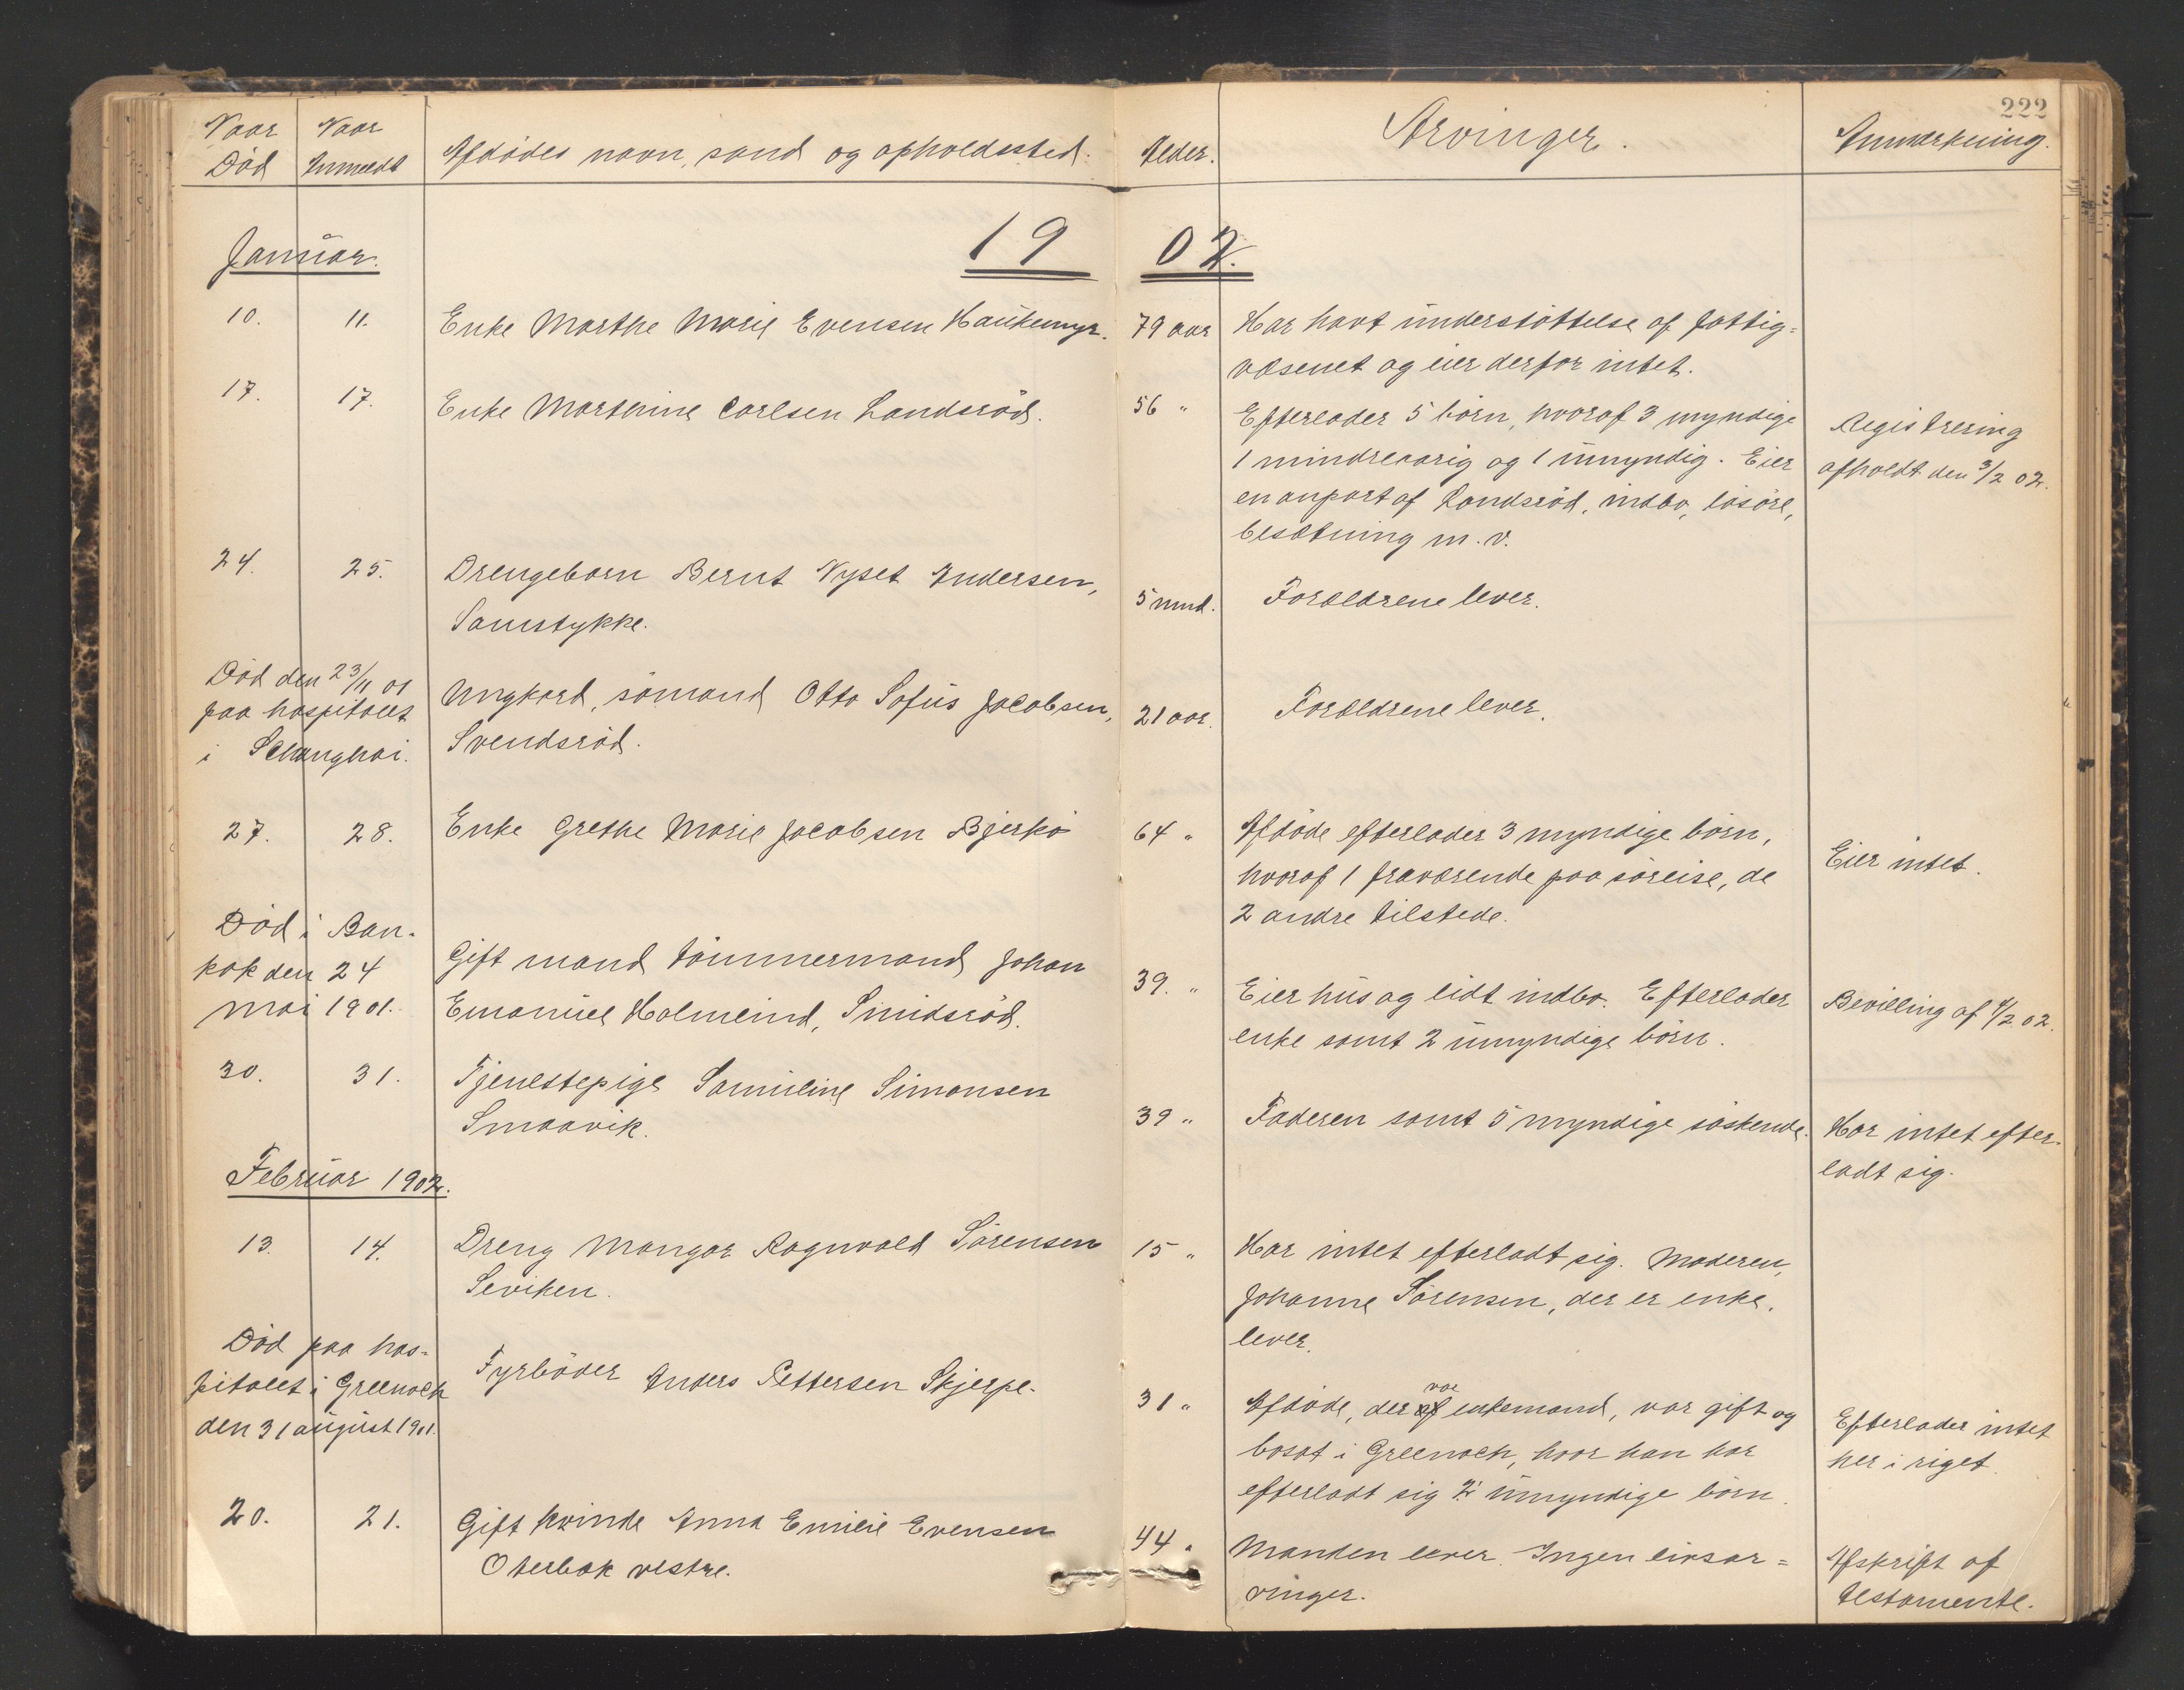 222
Naar Død
Naar Anmeldt
Afdødes navn, stand og opholdssted.
Alder.
Arvinger.
Anmærkning.
1902.
Januar.
10. 11. Enke Marthe Marie Evensen Haukemyr. 79 aar Har havt understøttelse af fattig=
væsenet og eier derfor intet.
17. 17. Enke Marthine Carlsen Landsrød. 56 " Efterlader 5 børn, hvoraf 3 myndige
1 mindreaarig og 1 umyndig. Eier
en anpart af Landsrød, indbo, løsøre,
besætning m. v.
Registrering
afholdt den 3/2 02.
24. 25. Drengebarn Bernt Nyset Andersen,
Saustykke.
5 mnd. Forældrene lever.
Død den 23/11 01
paa hospitalet
i Schanghai.
Ungkarl, sømand Otto Sofus Jacobsen,
Svendsrød.
21 aar. Forældrene lever.
27. 28. Enke Grethe Marie Jacobsen Bjerkø 64 " Afdøde efterlader 3 myndige børn,
hvoraf 1 fraværende paa søreise, de
2 andre tilstede.
Eier intet.
Død i Ban-
kok den 24
mai 1901.
Gift mand tømmermand Johan
Emanuel Holmeind, Smidsrød.
39. " Eier hus og lidt indbo. Efterlader
enke samt 2 umyndige børn.
Bevilling af 4/2 02.
30. 31. Tjenestepige Samueline Simonsen
Smaavik.
39 " Faderen samt 5 myndige søskende.
Har intet efter-
ladt sig.
Februar 1902.
13. 14. Dreng Mangor Ragnvald Sørensen
Seviken.
15 " Har intet efterladt sig. Moderen,
Johanne Sørensen, der er enke,
lever.
Død paa hos=
pitalet i Greenock
den 31 august 1901.
Fyrbøder Anders Pettersen Skjerpe.
31 " Afdøde, der var enkemand, var gift og
bosat i Greenock, hvor han har
efterladt sig 2 umyndige børn.
Efterlader intet
her i riget.
20. 21. Gift kvinde Anna Emilie Evensen
Oterbæk vestre.
44 " Manden lever. Ingen livsar=
vinger.
Afskrift af
testamente.